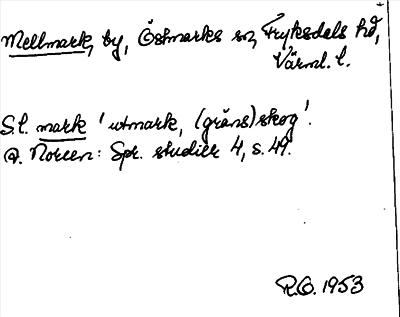 Mellmark, by, Östmarks sn, Fryksdals hd,
Värml. l.
S.l. mark 'utmark, (gräns)skog'.
A. Noreen: Spr. studier 4, s. 49.
R.O. 1953